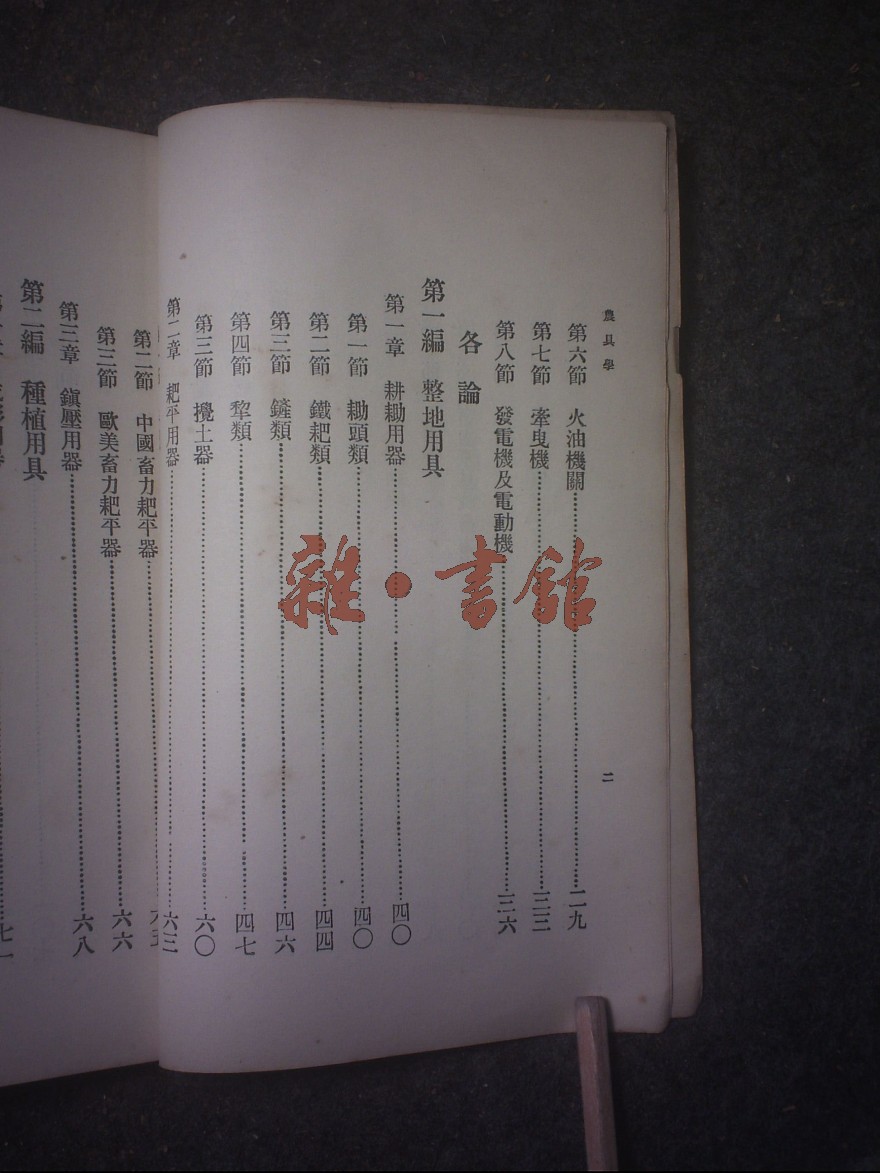 農具學
二
第六節 火油機關……二九
第七節 牽曳機……三三
第八節 發電機及電動機……三六
各論
第一編 整地用具
第一章 耕耡用器……四〇
第一節 耡頭類……四〇
第二節 鐵耙類……四四
第三節 鏟類……四六
第四節 犂類……四七
第三節 攪土器……六〇
第二章 耙平用器……六三
第二節 中國畜力耙平器……六
第三節 歐美畜力耙平器……六六
第三章 鎭壓用器……六八
第二編 種植用具
七一
雜·書館